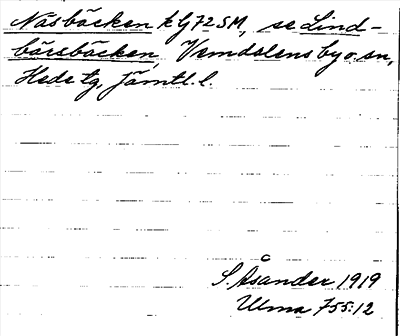 Näsbäcken k G72SM, se Lind-
bärsbäcken, Vemdalens by o. sn,
Hede tg, Jämtl. l.
S. Åsander 1919
Ulma 755:12